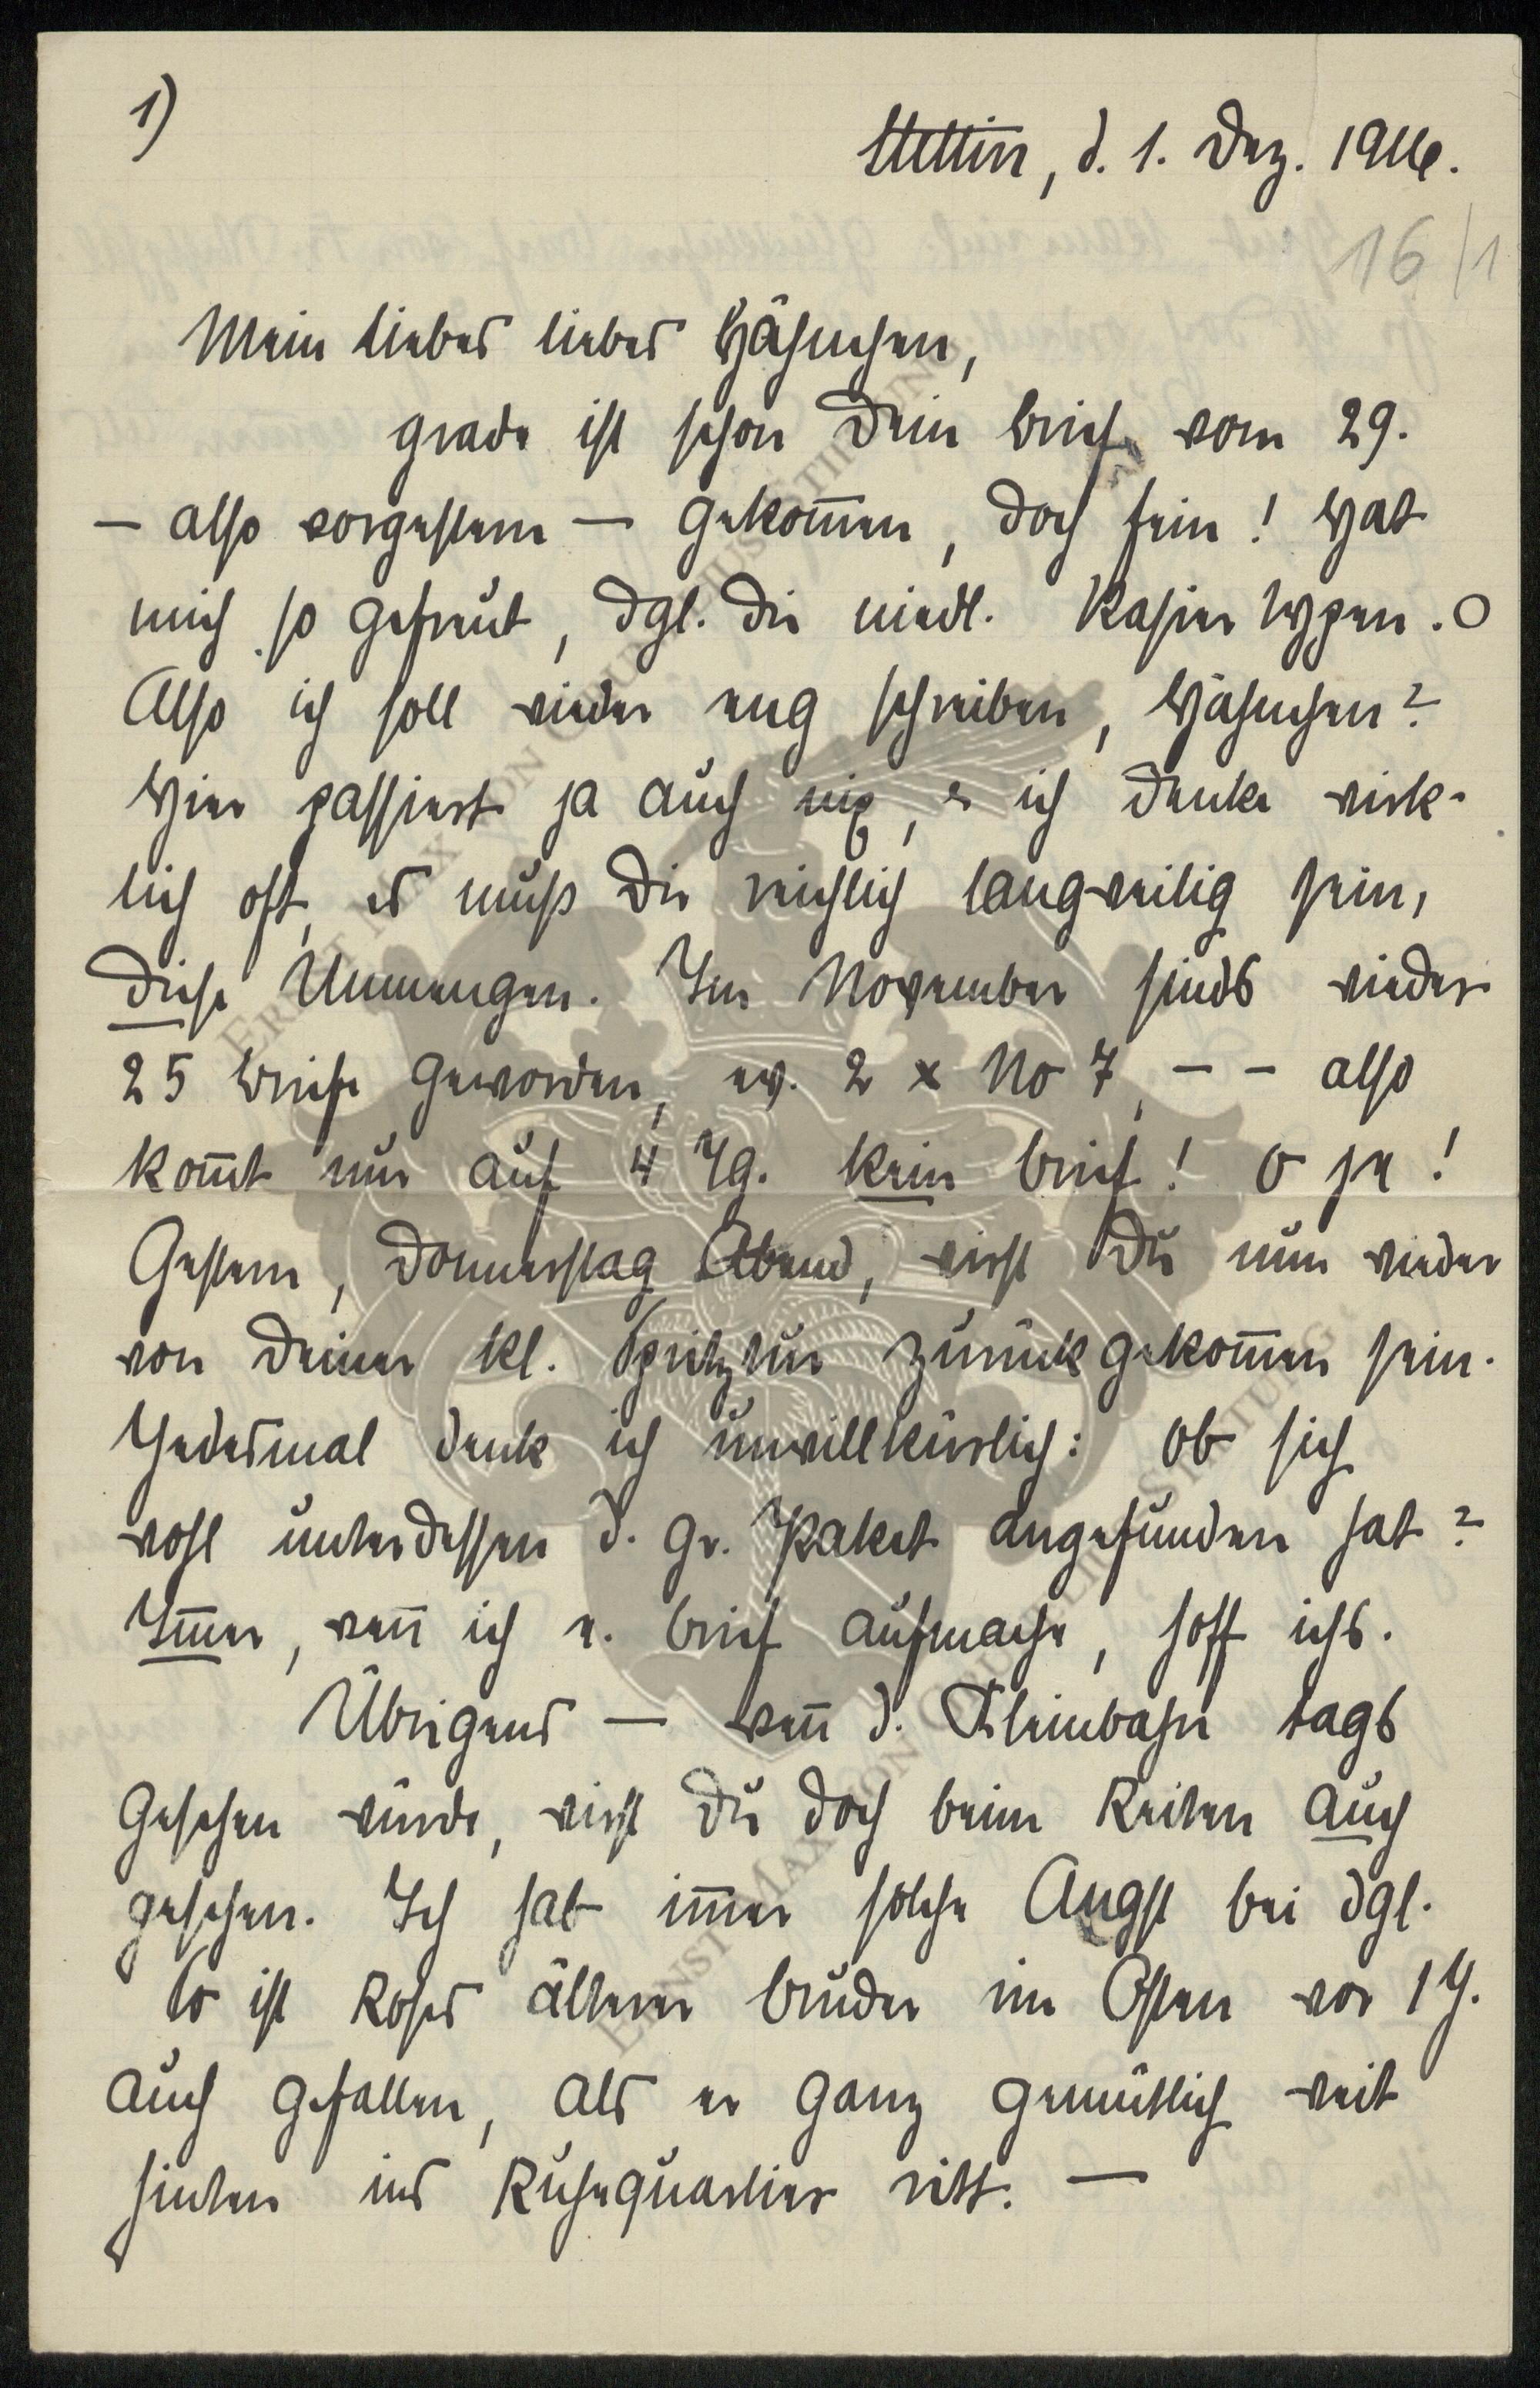 1)
Stettin, d. 1. Dez. 1916.
16/1
Mein liebes liebes Hähnchen,
grade ist schon Dein Brief vom 29.
– also vorgestern – gekommen, doch fein! Hat
mich so gefreut, dgl. die niedl. Kasier typen.
Also ich soll wieder eng schreiben, Hähnchen?
Hier passiert ja auch nix, & ich denke wirk-
lich oft, es muß Dir reichlich langweilig sein,
diese Unmengen. Im November sinds wieder
25 Briefe geworden, ev. 2 x No 7, – – also
kom̅t nur auf 4 Tg. kein Brief! O je!
Gestern, Donnerstag Abend, wirst Du nun wieder
von Deiner kl. Spritztur zurückgekom̅en sein.
Jedesmal denk ich unwillkürlich: ob sich
wohl unterdessen d. gr. Paket angefunden hat?
Im̅er, wen̅ ich e. Brief aufmache, hoff ichs.
Übrigens – wen̅ d. Kleinbahn tags
gesehen würde, wirst Du doch beim Reiten auch
gesehen. Ich hab im̅er solche Angst bei dgl.
So ist Roses älterer Bruder im Osten vor 1 J.
auch gefallen, als er ganz gemütlich weit
hinten ins Ruhequartier ritt. –
ERNST MAX VON GRUNELIUS-STIFTUNG
ERNST MAX VON GRUNELIUS-STIFTUNG